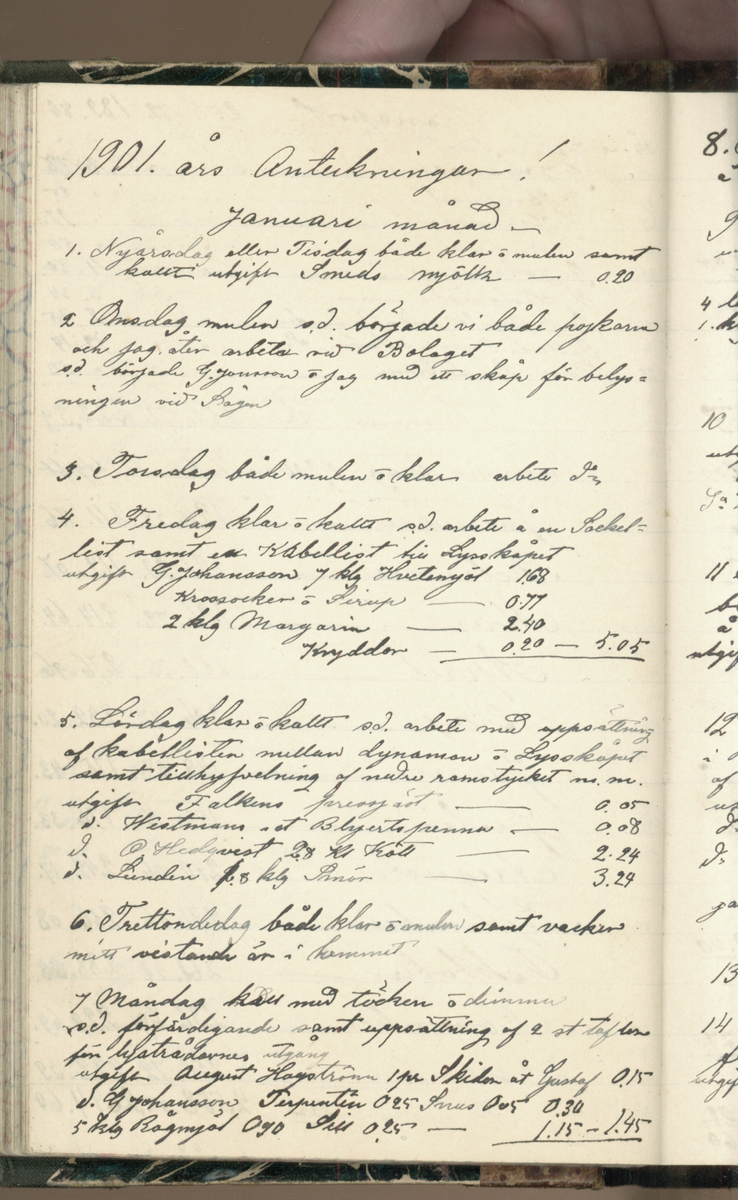 1901. års Anteckningar!
Januari månad
1. Nyårsdag eller Tisdag både klar ō mulen samt
kallt utgift Smeds mjölk — 0.20
2 Onsdag mulen s.d. började vi både pojkarna
och jag åter arbeta vid Bolaget
s.d. började G. Jonsson ō jag med ett skåp för belys=
ningen vid Sågen
3. Torsdag både mulen ō klar arbete d:o
4. Fredag klar ō kallt s.d. arbete å en Sockel=
list samt en Kabellist till Lysskåpet
utgift G. Johansson 7 klg Hvetemjöl 1.68
Krossocker ō Sirup — 0.77
2 klg Margarin — 2.40
Kryddor — 0.20 — 5.05
5. Lördag klar ō kallt s.d. arbete med uppsättning
af kabellisten mellan dynamon ō Lysskåpet
samt tillhyfvelning af nedre ramstycket m.m.
utgift Falkens pressjäst — 0.05
d. Westmans 1 st Blyertspenna — 0.08
d. Hedqvist 2.8 K Kött — 2.24
d. Lundin 1.8 klg Smör — 3.24
6. Trettondedag både klar ō mulen samt vacker
mitt vistande är i hemmet
7 Måndag kall med töcken ō dimma
s.d. förfärdigande samt uppsättning af 2 st taflor
för lystrådarnes utgång
utgift August Hagström 1 pr Skidor åt Gustaf 0.15
d. G Johansson Terpentin 0.25 Snus 0.05 0.30
5 klg Rågmjöl 0.90 Sill 0.25 — 1.15 — 1.45
8.
9
4
1.
10
11
12
13
14